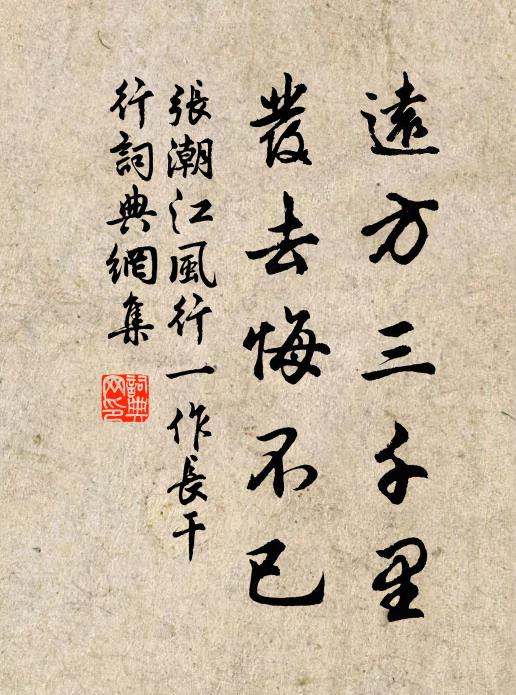 遠方三千里
發去悔不已
張潮江風行一作長干
行詞典網集
詞典
网印